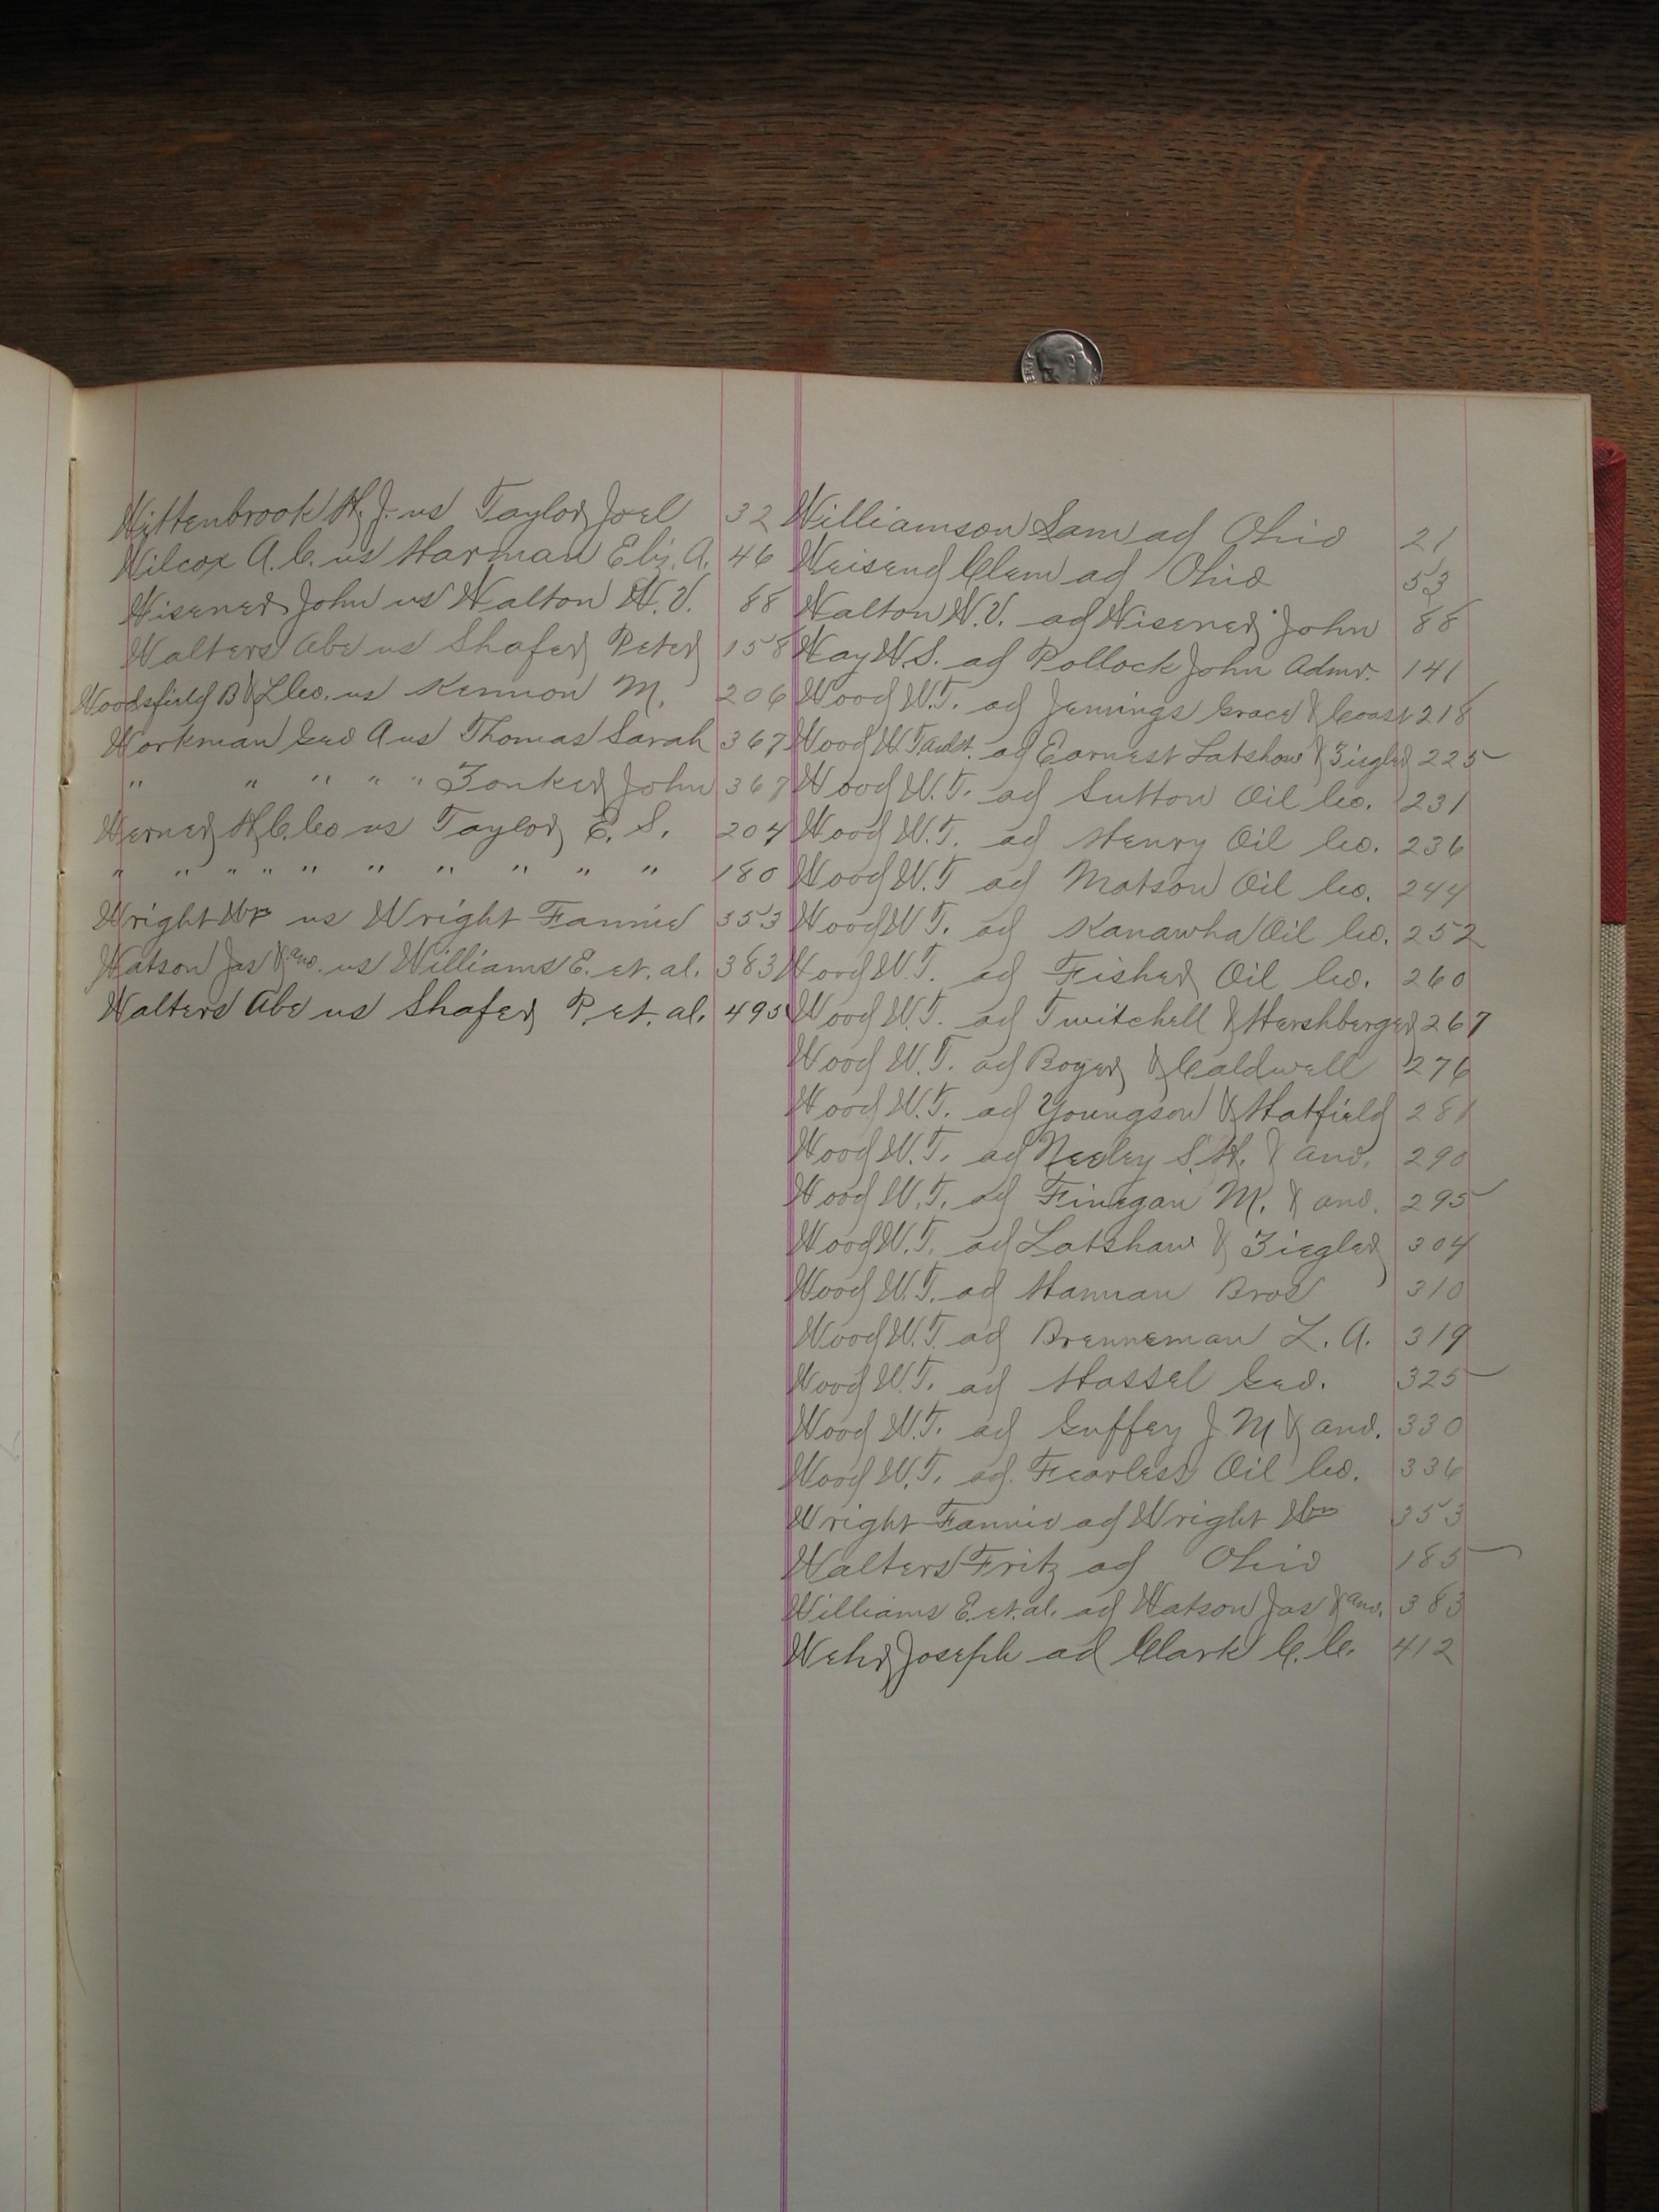 Wittenbrook H. J. vs Taylor Joel 32
Wilcox A. C. vs Harman Eliz. A. 46
Wisener John vs Walton W. V. 88
Walters Abe vs Shafer Peter 158
Woodsfield B & L Co. vs Kennon M. 206
Workman Geo A vs Thomas Sarah 367
" " " " " Zonker John 367
Werner H. C. Co vs Taylor E. S. 204
" " " " " " " " " " 180
Wright Wm vs Wright Fannie 353
Watson Jas & ano. vs Williams E. et. al. 383
Walters Abe vs Shafer P. et. al. 495
Williamson Sam ad Ohio 21
Weisend Clem ad Ohio 53
Walton W. V. ad Wisener John 88
Way W. S. ad Pollock John Admr. 141
Wood W. T. ad Jennings Grace & Coast 218
Wood W. T. ad Earnest Latshaw & Ziegler 225
Wood W. T. ad Sutton Oil Co. 231
Wood W. T. ad Henry Oil Co. 236
Wood W. T ad Matson Oil Co. 244
Wood W T. ad Kanawha Oil Co. 252
Wood W. T. ad Fisher Oil Co. 260
Wood W. T. ad Twitchell & Hershberger 267
Wood W. T. ad Boyer & Caldwell 276
Wood W. T. ad Youngson & Hatfield 281
Wood W. T. ad Neeley S. H. & ano. 290
Wood W. T. ad Finegan M. & ano. 295
Wood W. T. ad Latshaw & Ziegler 304
Wood W. T. ad Hannan Bros 310
Wood W. T. ad Brenneman L. A. 319
Wood W. T. ad Hassel Geo. 325
Wood W. T. ad Guffey J M & ano. 330
Wood W. T. ad. Fearless Oil Co. 336
Wright Fannie ad Wright Wm 353
Walters Fritz ad Ohio 185
Williams E. et. al. ad Watson Jas & ano. 383
Wehr Joseph ad Clark C. C. 412